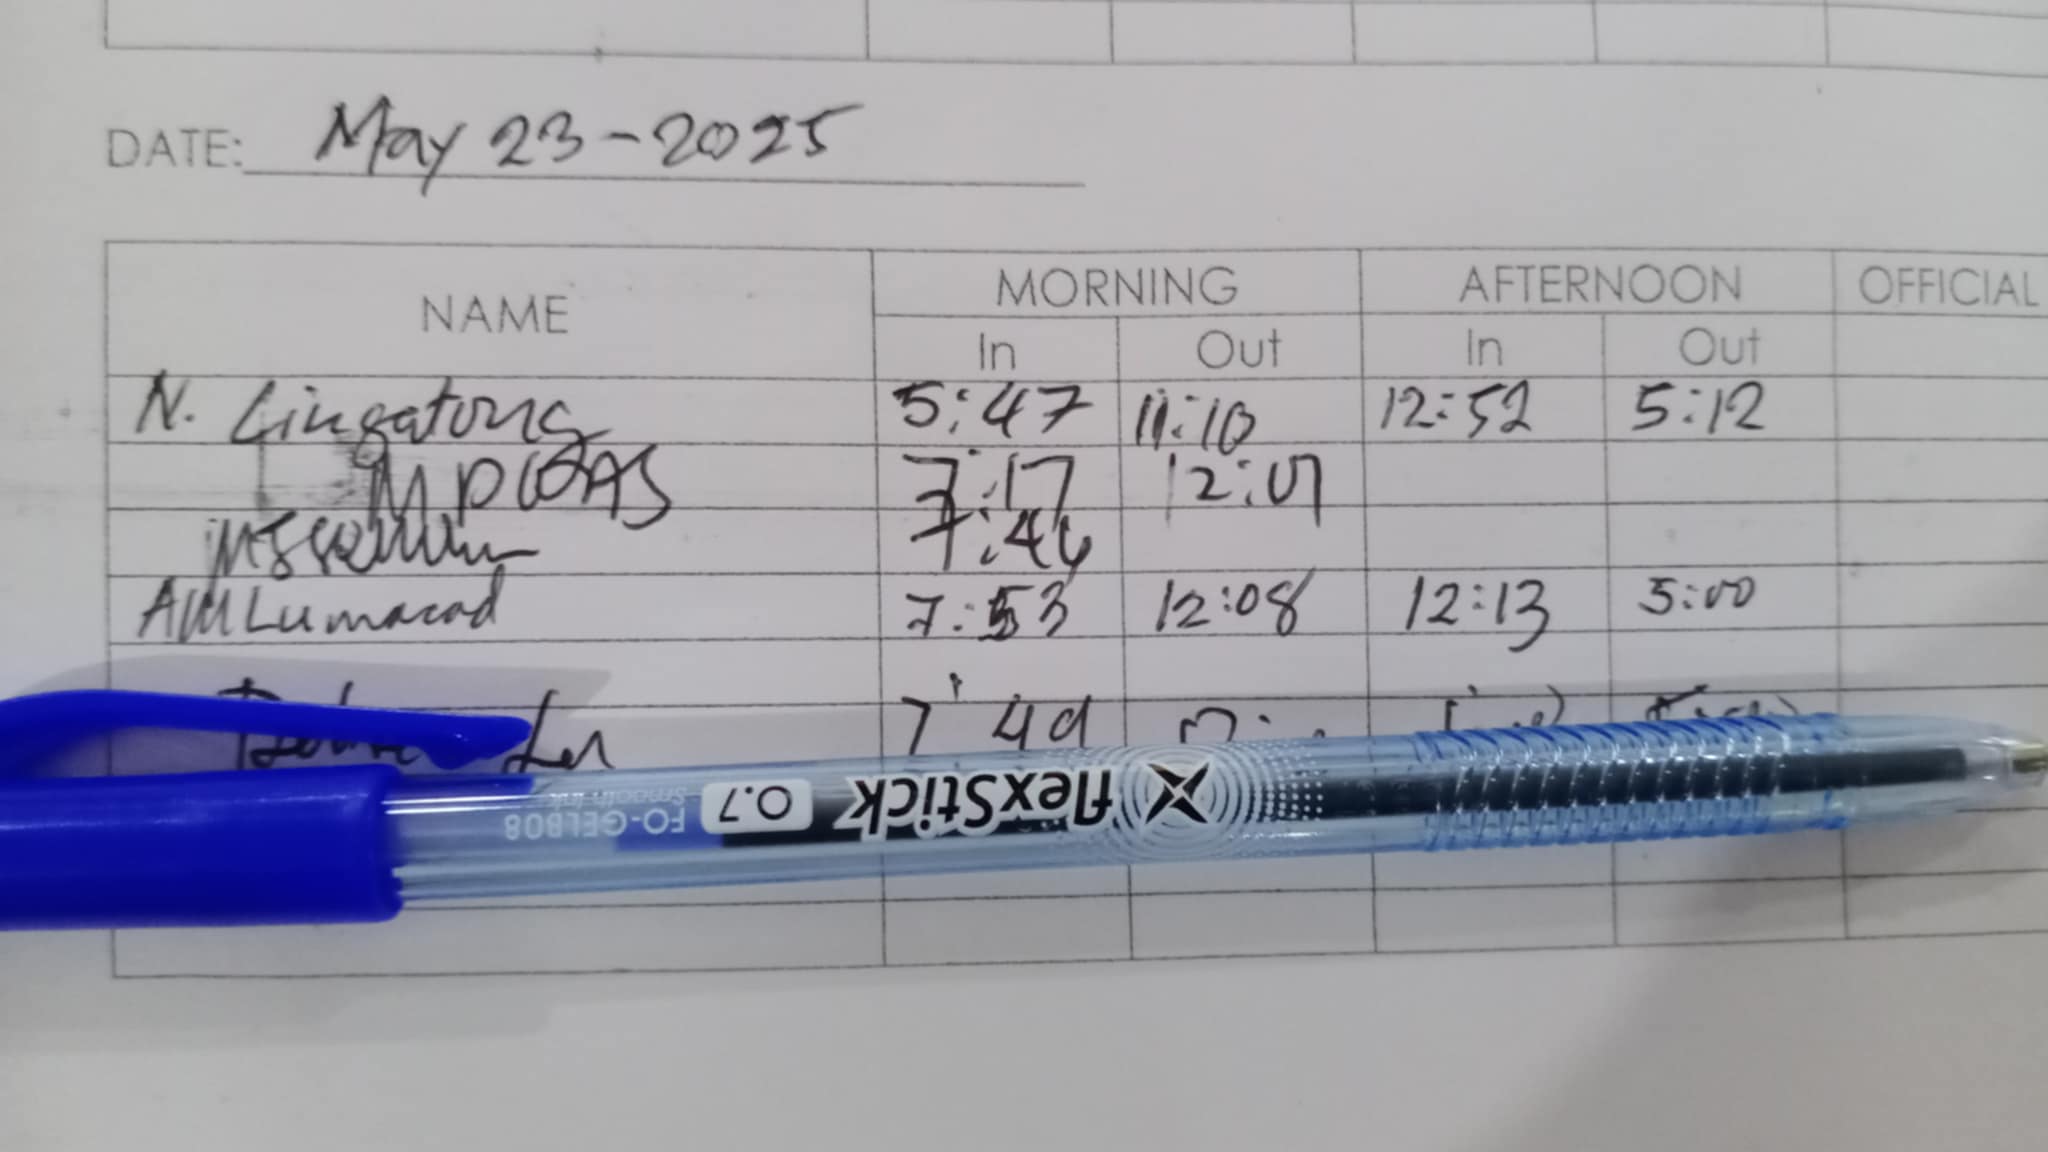 DATE: May 23-2025
NAME MORNING AFTERNOON OFFICIAL
In Out In Out
N. Lingatong 5:47 11:10 12:52 5:12
7:17 12:07
7:46
AMLumacad 7:53 12:08 12:13 5:00
7:49
flexStick 0.7 FO-GELB08
Smooth Ink